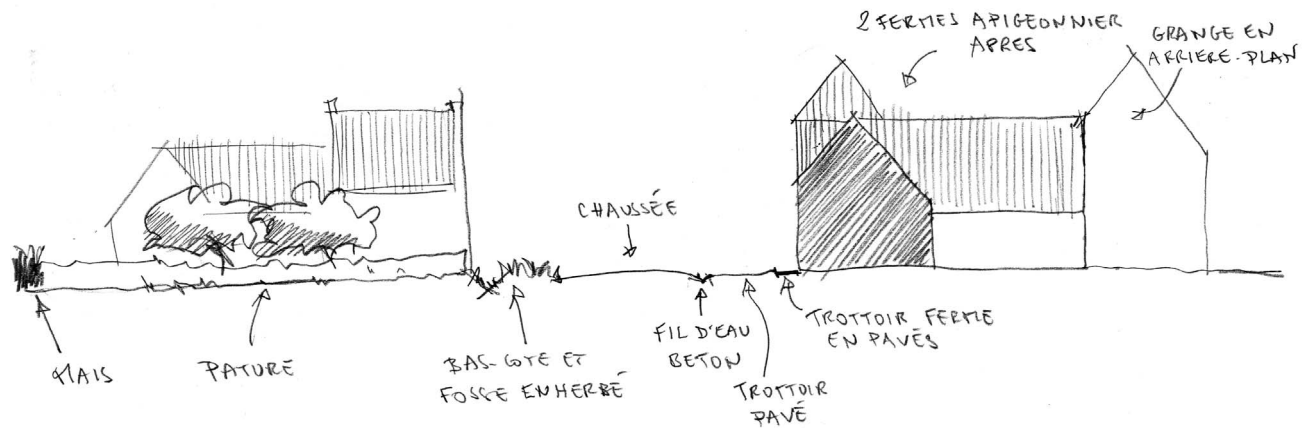 2 FERMES A PIGEONNIER
APRES
GRANGE EN
ARRIERE-PLAN
CHAUSSÉE
MAIS
PATURE
BAS-COTE ET
FOSSE ENHERBÉ
FIL D'EAU
BETON
TROTTOIR
PAVÉ
TROTTOIR FERME
EN PAVÉS